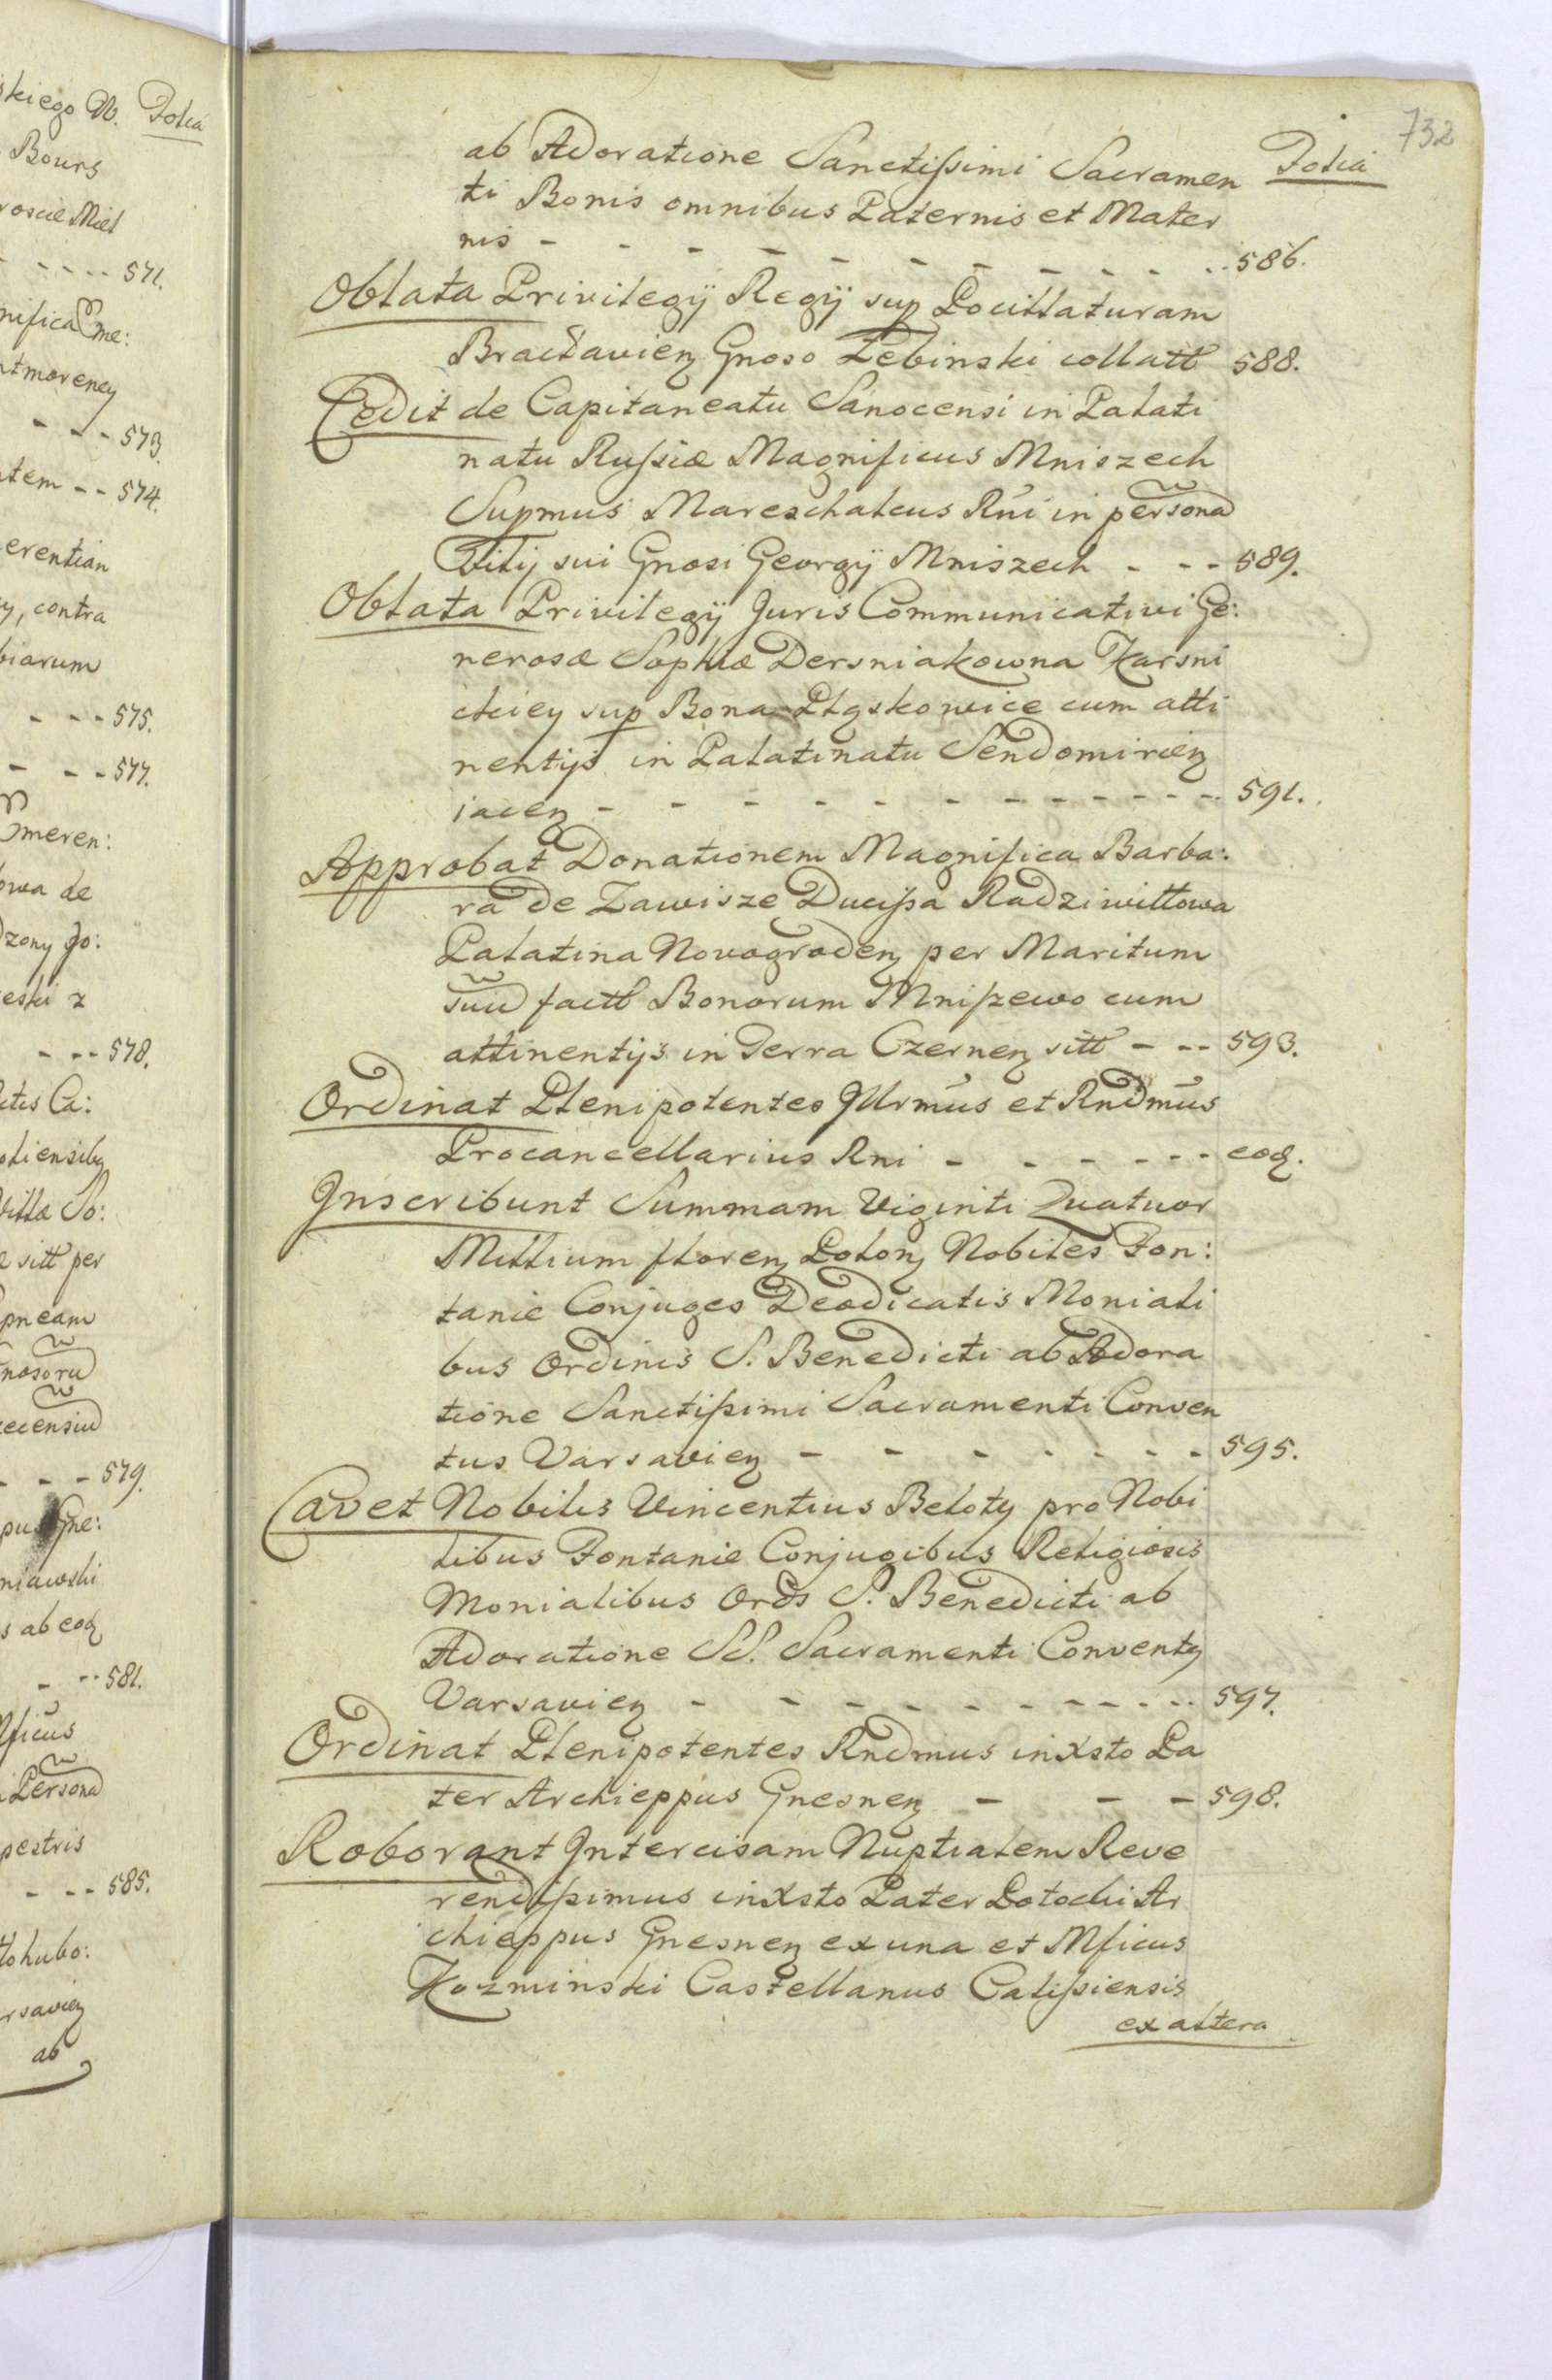 skiego W. Folia
Bours
rosciæ Miel
- - - - 571.
nifica Gne:
- - - 573.
tem - - 574.
erentian
y, contra
biarum
- - - 575.
- - - 577.
meren:
owa de
dzony Jo:
eski z
- - - 578.
etis Ca:
oliensibq
Villæ So:
e sitt per
pneam
nosoru
ecensiu
- - - 579.
Gne:
niawski
s ab eoq
- - - 581.
Mficus
Persona
pestris
- - - 585.
Hohubo:
rsavieɳ
ab
732
Folia
ab Adoratione Sanctissimi Sacramen
ti Bonis omnibus Paternis et Mater
nis - - - - - - - - - - 586.
Oblata Privilegij Regij sup Pocillaturam
Bracłavieɳ Gnoso Zebinski collatt 588.
Cedit de Capitaneatu Sanocensi in Palati
natu Russiæ Magnificus Mniszech
Supmus Mareschalcus Rni in persona
Filij sui Gnosi Georgij Mniszech - - - 589.
Oblata Privilegij Juris Communicativi Ge:
nerosæ Sophiæ Dersniakowna Karsni
ckiey sup Bona Plɋskowice cum atti
nentijs in Palatinatu Sendomirieɳ
iaceɳ - - - - - - - - - - 591.
Approbat Donationem Magnifica Barba:
ra de Zawisze Ducissa Radziwiłłowa
Palatina Novogrodeɳ per Maritum
suu factt Bonorum Mniszewo cum
attinentijs in Terra Czerneɳ sitt - - - 593.
Ordinat Plenipotentes Jllrmus et Rndmus
Procancellarius Rni - - - - - - eoɋ.
Jnscribunt Summam Viginti Quatuor
Millium floreɳ Poloɳ Nobiles Fon:
tanie Conjuges Deodicatis Moniali
bus Ordinis S. Benedicti ab Adora
tione Sanctissimi Sacramenti Conven
tus Varsavieɳ - - - - - - - 595.
Cavet Nobilis Vincentius Beloty pro Nobi
libus Fontanie Conjugibus Religiosis
Monialibus Ords S. Benedicti ab
Adoratione SS. Sacramenti Conventɋ
Varsavieɳ - - - - - - - - - 597.
Ordinat Plenipotentes Rndmus inXsto Pa
ter Archieppus Gnesneɳ - - - 598.
Roborant Jntercisam Nuptialem Reve
rendissimus inXsto Pater Potocki Ar
chieppus Gnesneɳ ex una et Mficus
Kozminski Castellanus Calissiensis
ex altera.